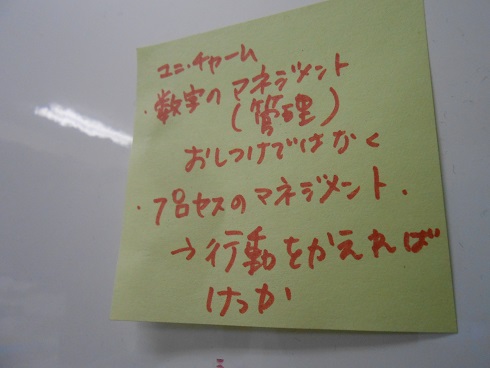 ユニ・チャーム
・数字のマネジメント
(管理)
おしつけではなく
・プロセスのマネジメント.
→行動をかえれば
けっか